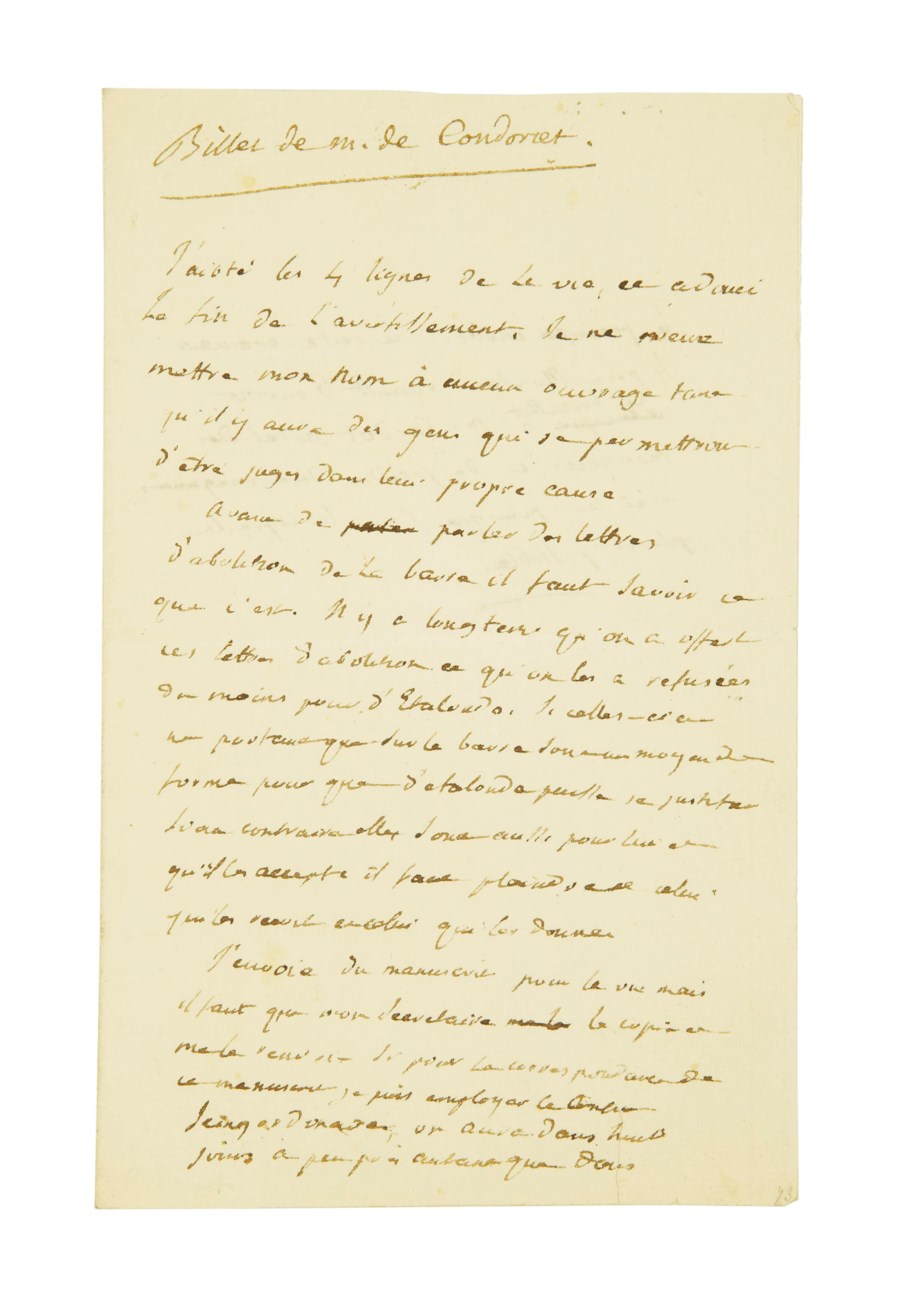 Billet de m. de Condorcet.
J'ai oté les 4 lignes de la vie, et adouci
la fin de l'avertissement. Je ne veux
mettre mon nom à aucun ouvrage tant
qu'il y aura des gens qui se permettront
d'être juges dans leur propre cause
avant de parler parler des lettres
d'abolition de La barre il faut savoir ce
que c'est. Il y a longtems qu'on a offert
ces lettres d'abolition et qu'on les a refusées
du moins pour d'Etalonde. Si celles-ci
ne portant que sur la barre sont un moyen de
forme pour que d'etalonde puisse se justifier
si au contraire elles sont aussi pour lui et
qu'il les accepte il faut plaindre et celui
qui les recoit et celui qui les donne
J'envoie du manuscrit pour la vie mais
il faut que mon secretaire le copie et
me le renvoie Si pour la correspondance de
ce manuscrit, je puis employer le
on aura dans huit
jours à peu près autant que dans
73